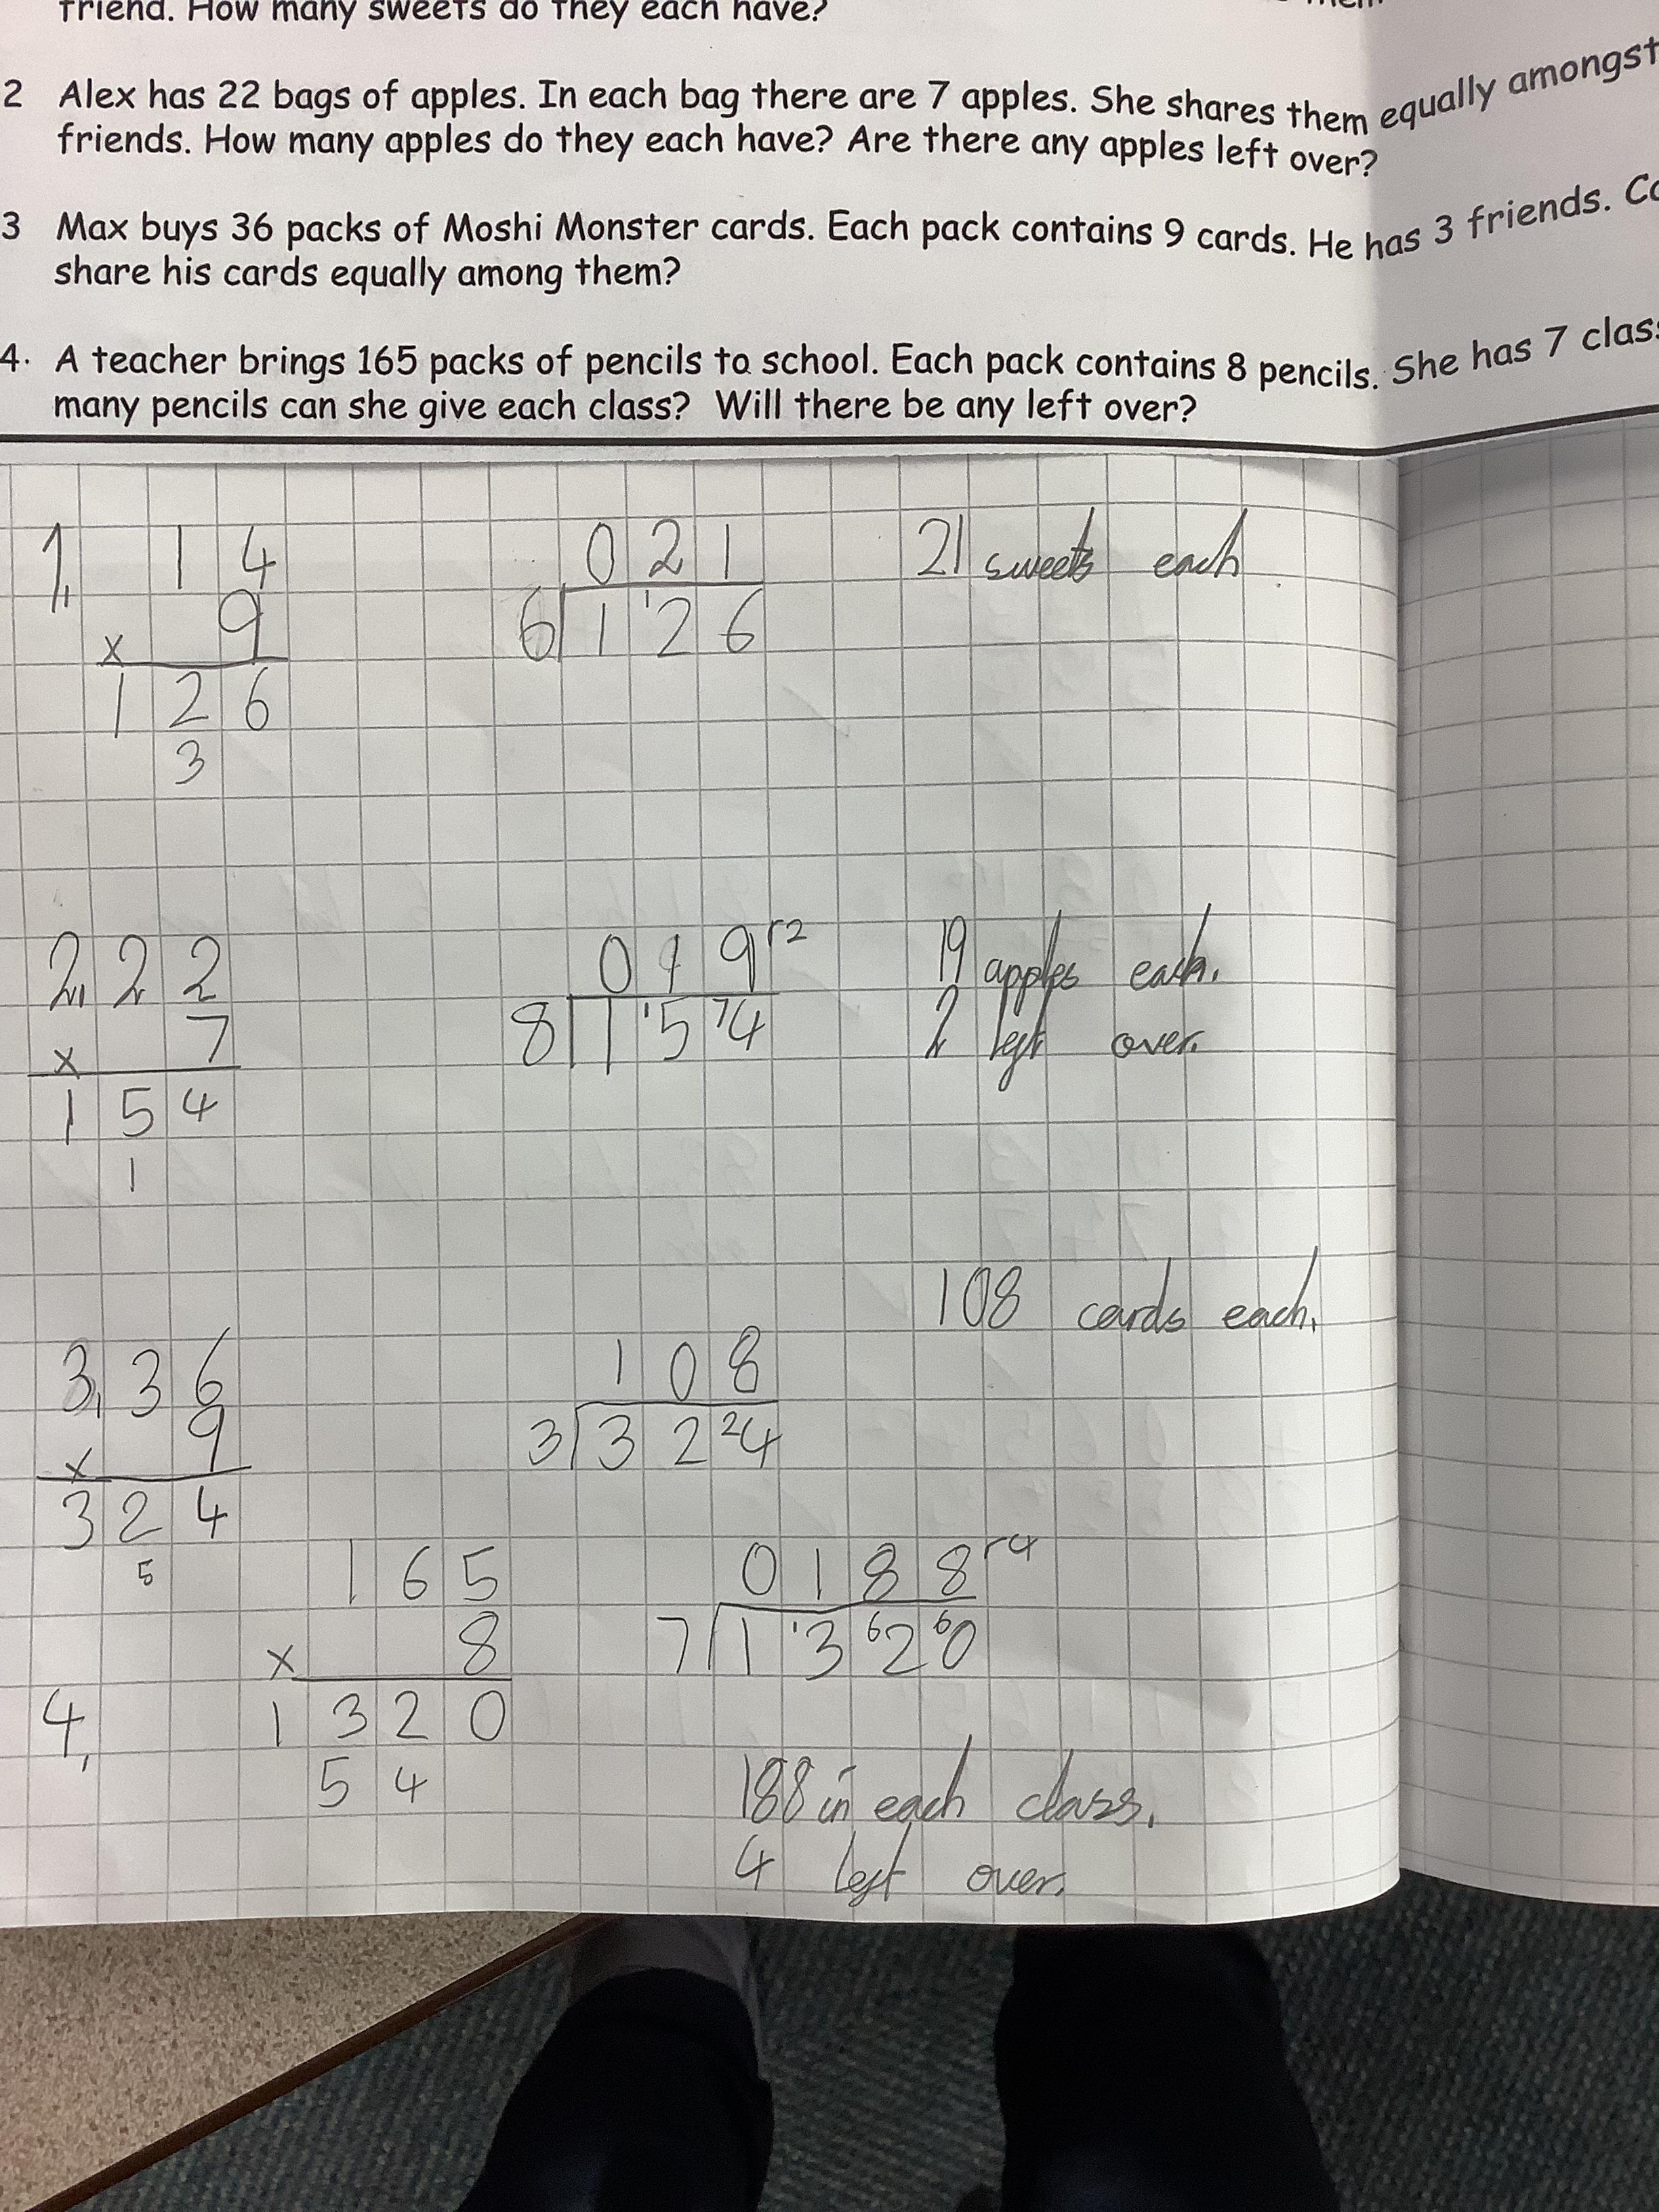 friend. How many sweets do they each have?
2 Alex has 22 bags of apples. In each bag there are 7 apples. She shares them equally amongst
friends. How many apples do they each have? Are there any apples left over?
3 Max buys 36 packs of Moshi Monster cards. Each pack contains 9 cards. He has 3 friends.
share his cards equally among them?
4. A teacher brings 165 packs of pencils to school. Each pack contains 8 pencils. She has 7
many pencils can she give each class? Will there be any left over?
1, 14 021 21 sweets each
x 9 6 1 ¹2 6
126
3
2, 22 019 r2 19 apples each.
x 7 8 1 ¹5 ⁷4 2 left over.
154
1
108 cards each.
3, 36 108
x 9 3 3 2 ²4
324
5
165 0188 r4
x 8 7 1 ¹3 ⁶2 ⁶0
4, 1320
54
188 in each class.
4 left over.